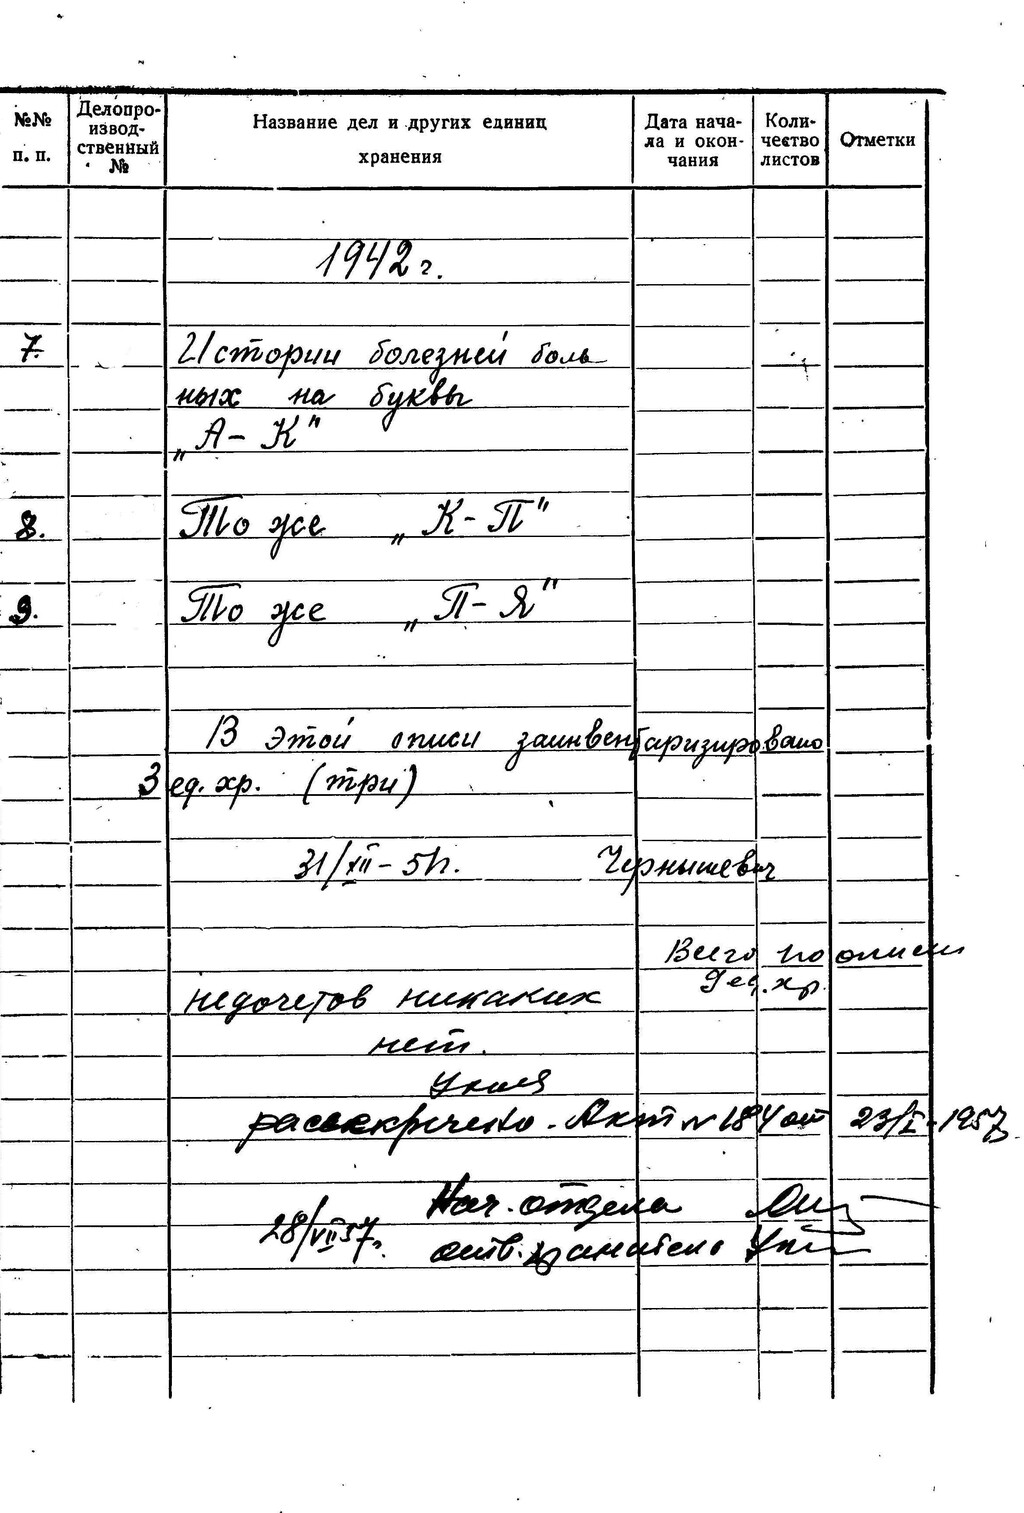 №№ п. п.
Делопро-
извод-
ственный
№
Название дел и других единиц
хранения
Дата нача-
ла и окон-
чания
Коли-
чество
листов
Отметки
1942 г.
7. Истории болезней боль-
ных на буквы
„А - К"
8. То же „К - П"
9. То же „П - Я"
В этой описи заинвентаризировано
3 ед. хр. (три)
31/XII - 5 Чернышевич
Всего по описи
9 ед. хр.
недочетов никаких
нет.
рассекречено. Акт № 184 от 23/I - 1957
Нач. отдела
28/VII 57г.
отв. хранитель